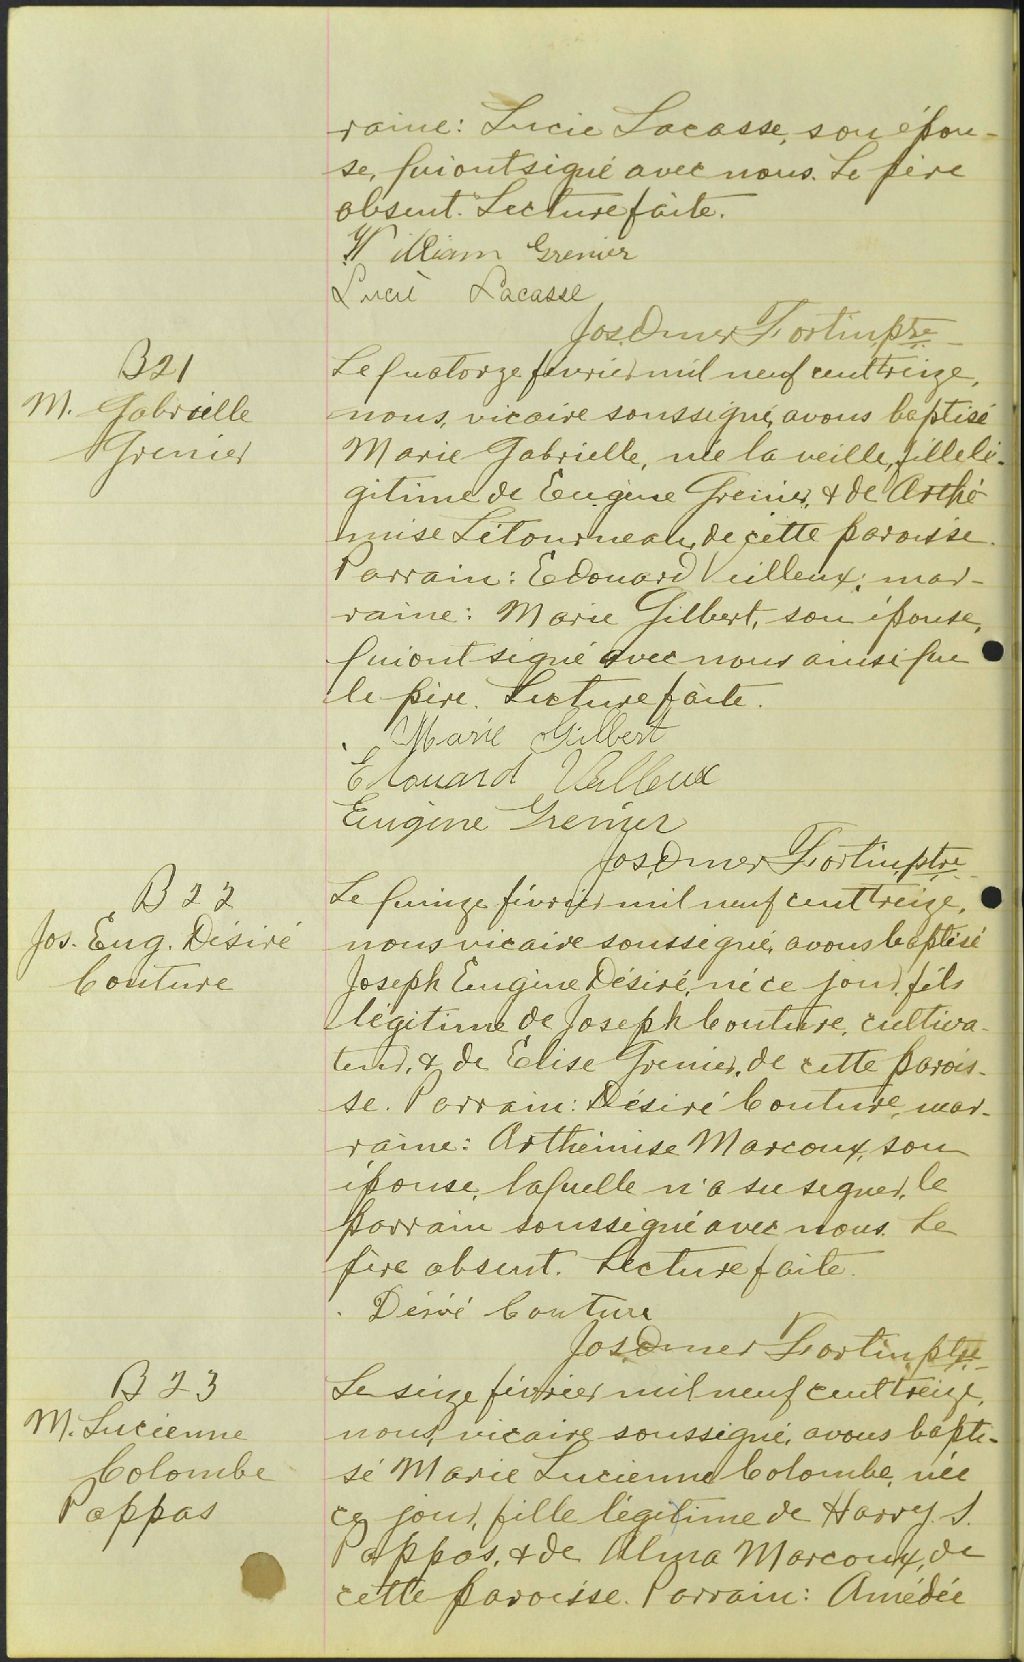 raine: Lucie Lacasse, son épou-
se, qui ont signé avec nous. Le père
absent. Lecture faite.
William Grenier
Lucie Lacasse
Jos. Omer Fortin, ptre
B 21
M. Gabrielle
Grenier
Le quatorze février mil neuf cent treize,
nous, vicaire soussigné, avons baptisé
Marie Gabrielle, née la veille, fille lé-
gitime de Eugène Grenier, & de Arthé
mise Létourneau, de cette paroisse.
Parrain: Edouard Veilleux; mar-
raine: Marie Gilbert, son épouse,
qui ont signé avec nous ainsi que
le père. Lecture faite.
Marie Gilbert
Edouard Veilleux
Eugène Grenier
Jos. Omer Fortin, ptre
B 22
Jos. Eug. Désiré
Couture
Le quinze février mil neuf cent treize,
nous vicaire soussigné, avons baptisé
Joseph Eugène Désiré, né ce jour, fils
légitime de Joseph Couture, cultiva-
teur, & de Elise Grenier, de cette parois-
se. Parrain: Désiré Couture, mar-
raine: Arthémise Marcoux, son
épouse, laquelle n'a su signer, le
parrain soussigné avec nous. Le
père absent. Lecture faite.
Désiré Couture
Jos. Omer Fortin, ptre
B 23
M. Lucienne
Colombe
Pappas
Le seize février mil neuf cent treize,
nous, vicaire soussigné, avons bapti-
sé Marie Lucienne Colombe, née
ce jour, fille légitime de Harry S.
Pappas, & de Alma Marcoux, de
cette paroisse. Parrain: Amédée